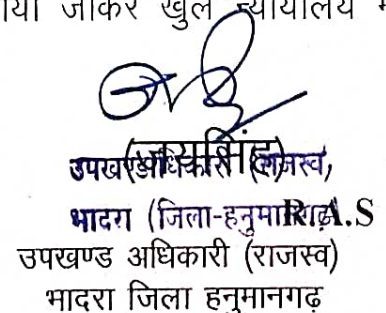 या जाकर खुले न्यायालय
(जयसिंह)
उपखण्ड अधिकारी (राजस्व)
भादरा (जिला-हनुमानगढ़) R.A.S
उपखण्ड अधिकारी (राजस्व)
भादरा जिला हनुमानगढ़